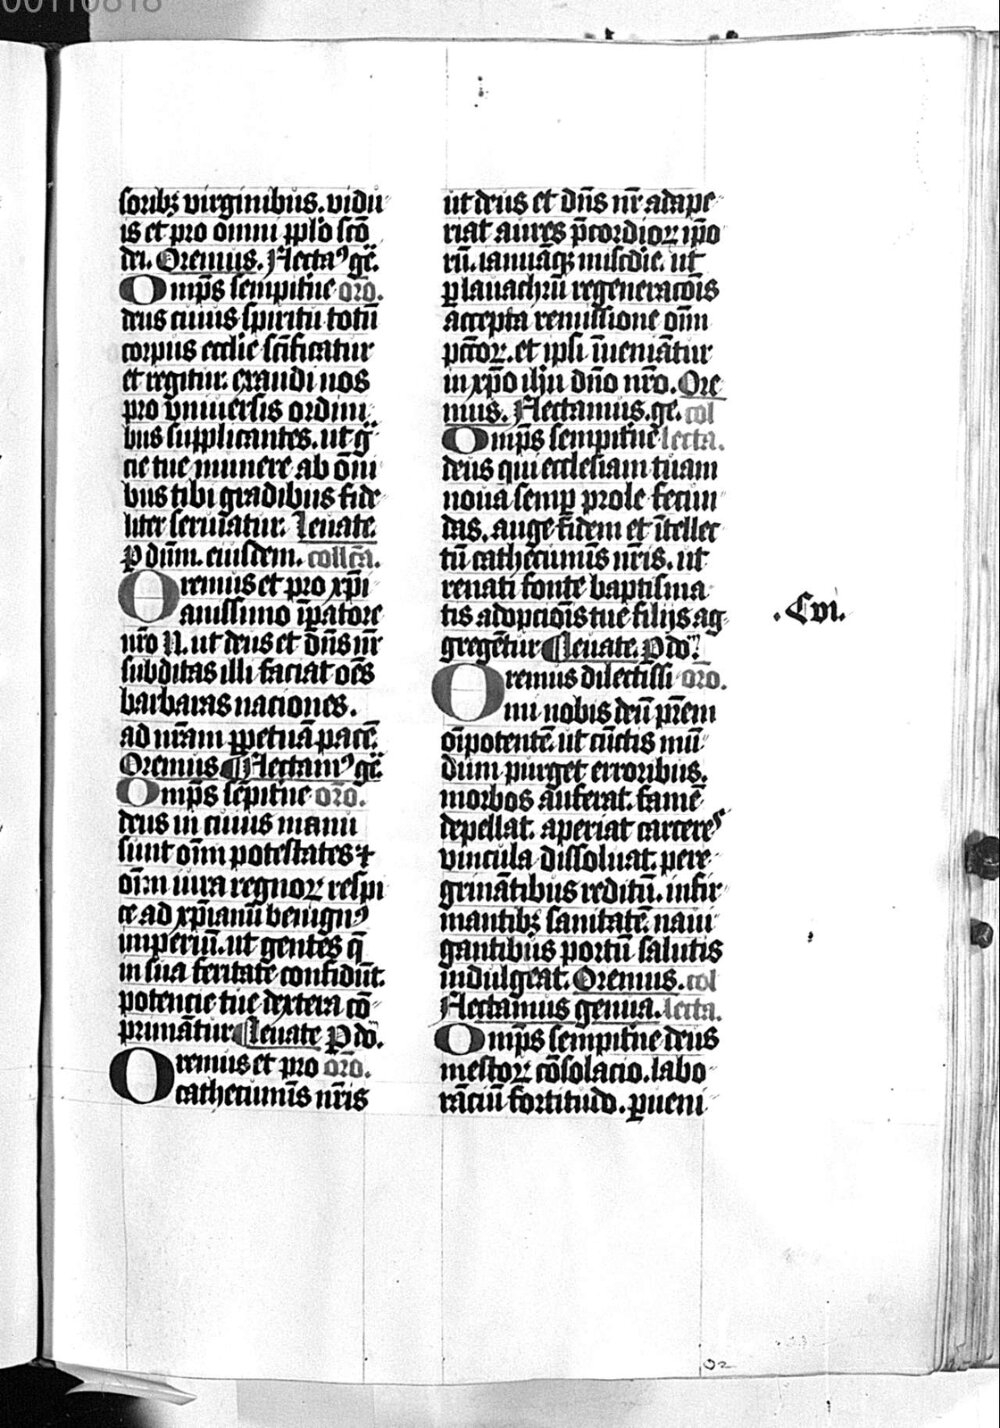 00110818
soribꝫ virginibus. vidu
is et pro omni pplo scō
dei. Oremus. Flectaꝰ gē.
Omps̄ sempitne oro.
deus cuius spiritu totū
corpus ecclie scīficatur
et regitur. exaudi nos
pro vniuersis ordini
bus supplicantes. ut gͬ
cie tue munere ab om̄i
bus tibi gradibus fide
liter seruiatur. Leuate.
P dūm. eiusdem. collcā.
Oremus et pro xp̄i
anissimo īpatore
nr̄o N. ut deus et dn̄s nr̄
subditas illi faciat oēs
barbaras naciones.
ad nr̄am ꝑpetuā pacē.
Oremus Flectamꝰ gē.
Omps̄ sēpitne oro.
deus in cuius manu
sunt oīm potestates ⁊
oīm iura regnoꝝ respi
ce ad xp̄ianū benignꝰ
imperiū. ut gentes q̄
in sua feritate confidūt.
potencie tue dextera cō
primātur Leuate P do.
Oremus et pro oro.
cathecumīs nr̄is
ut deus et dn̄s nr̄ adape
riat aures p̄cordioꝝ ip̄o
rū. ianuāqꝫ miscdie. ut
ꝑ lauachrū regeneracōis
accepta remissione oīm
pctōꝝ. et ipsi īueniātur
in xp̄o ihu dn̄o nr̄o. Ore
mus. Flectamus. ge. col
Omps̄ sempitne lecta.
deus qui ecclesiam tuam
noua semꝑ prole fecun
das. auge fidem et ītellec
tū cathecumīs nr̄is. ut
renati fonte baptisma
tis adopciōis tue filijs ag
gregētur Leuate. P do.
Oremus dilectissi oro.
mi nobis deū pr̄em
oīpotentē. ut cūctis mū
dum purget erroribus.
morbos auferat. famē
depellat. aperiat carceres
vincula dissoluat. pere
grinātibus reditū. infir
mantibꝫ sanitatē. naui
gantibus portū salutis
indulgeat. Oremus. col
Flectamus genua. lecta.
Omps̄ sempitne deus
mestoꝝ cōsolacio. labo
rāciū fortitudo. ꝑueni
.Cvi.